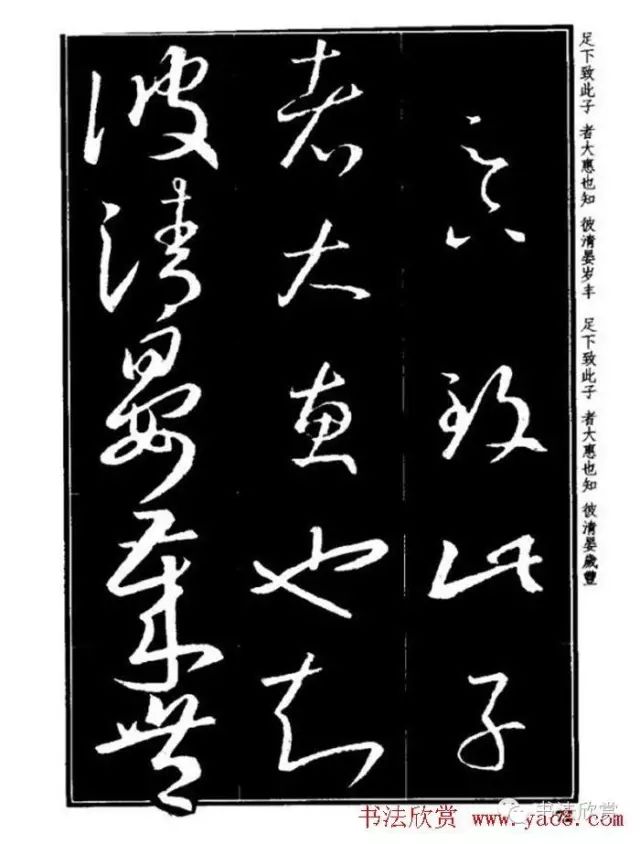 足下致此子
者大惠也知
彼清晏歲豐
足下致此子 者大惠也知 彼清晏岁丰 足下致此子 者大惠也知 彼清晏歲豐
书法欣赏 www.yac8.com
书法欣赏
78